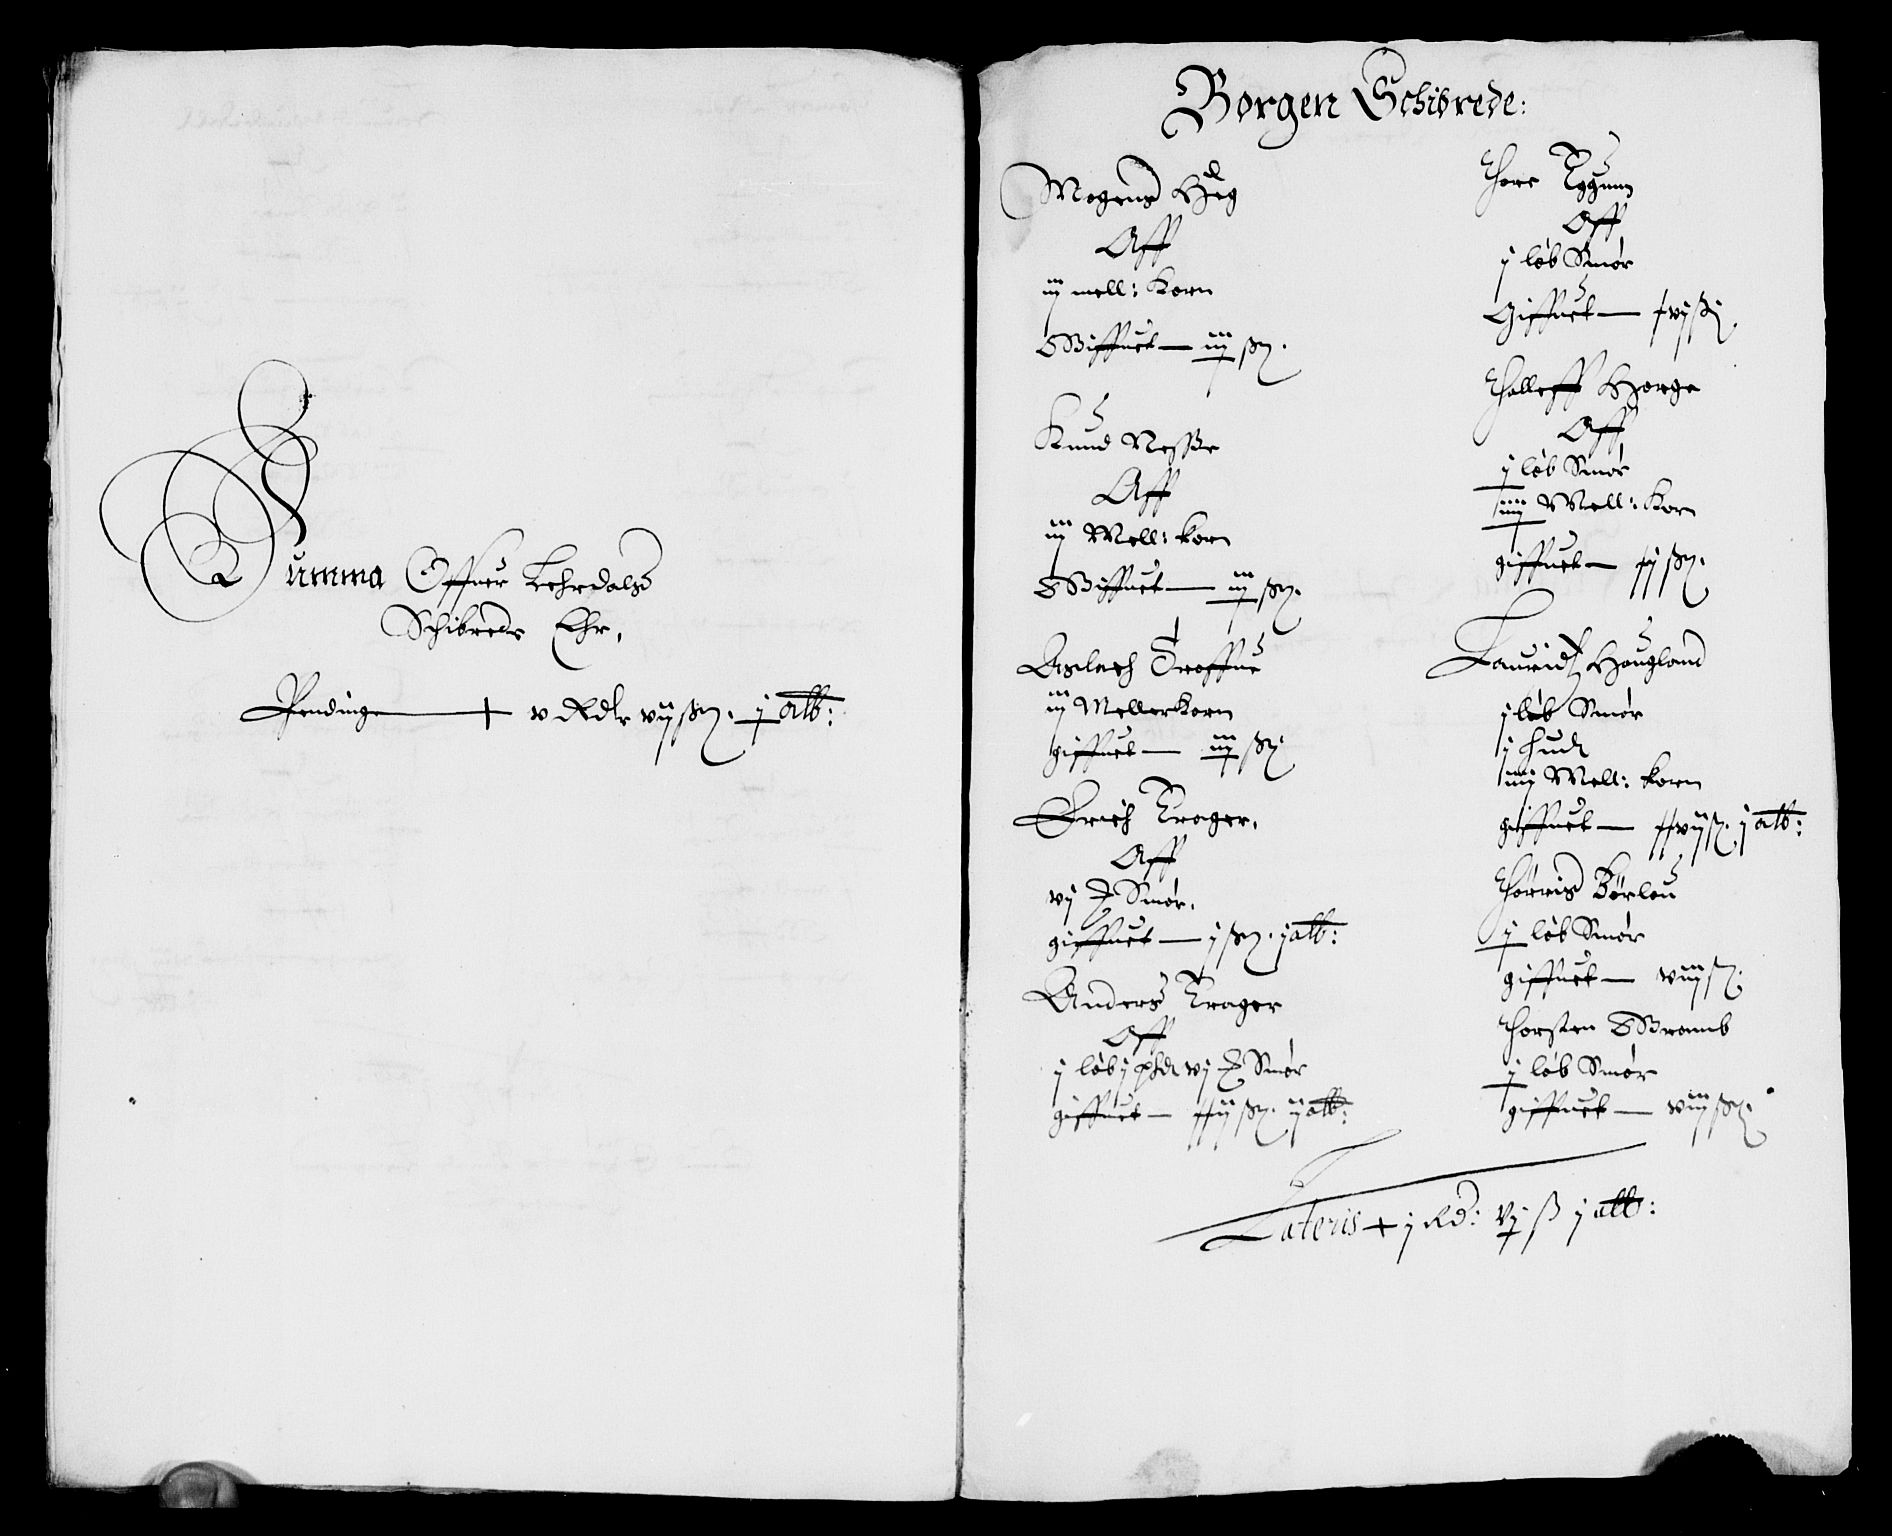 Summa Offuer Lehrdals
Schibrede Ehr,
Pendinge — v Rdlr vij ß. j alb:
Borgen Schibrede:
Mogens Hug
Aff
iij mell: Korn
Giffuet — iiij ß.
Knud Nesse
Aff
iij Mell: korn
Giffuet — iiij ß.
Aslach
iij Meller Korn
giffuet — iiij ß.
Erich Krager.
Aff
vj Smør.
giffuet — j ß. j alb:
Anders Krager
Aff
j løb j pd vj Smør
giffuet — ß. ij alb:
Thore
Aff
j løb Smør
Giffuet —
Tholleff Horge
Aff
j løb Smør
iiij Mell: Korn
giffuet —
Lauridz Hougland
j løb Smør
j hud
iiij Mell: korn
giffuet — j alb:
Thørris Børlou
j løb Smør
giffuet — viij ß.
Thorsten
j løb Smør
giffuet — viij ß.
Lateris j Rd: vj ß j alb: